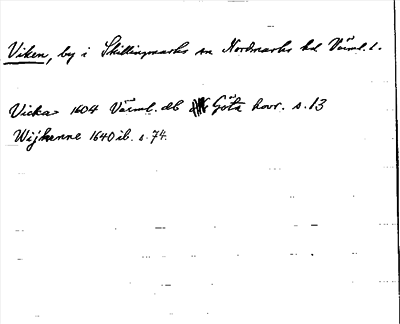 Viken, by i Skillingmarks sn Nordmarks hd Värml. l.
Vicka 1604 Värml. db Göta hovr. s. 13
Wijkenne 1640 ib. s. 74.